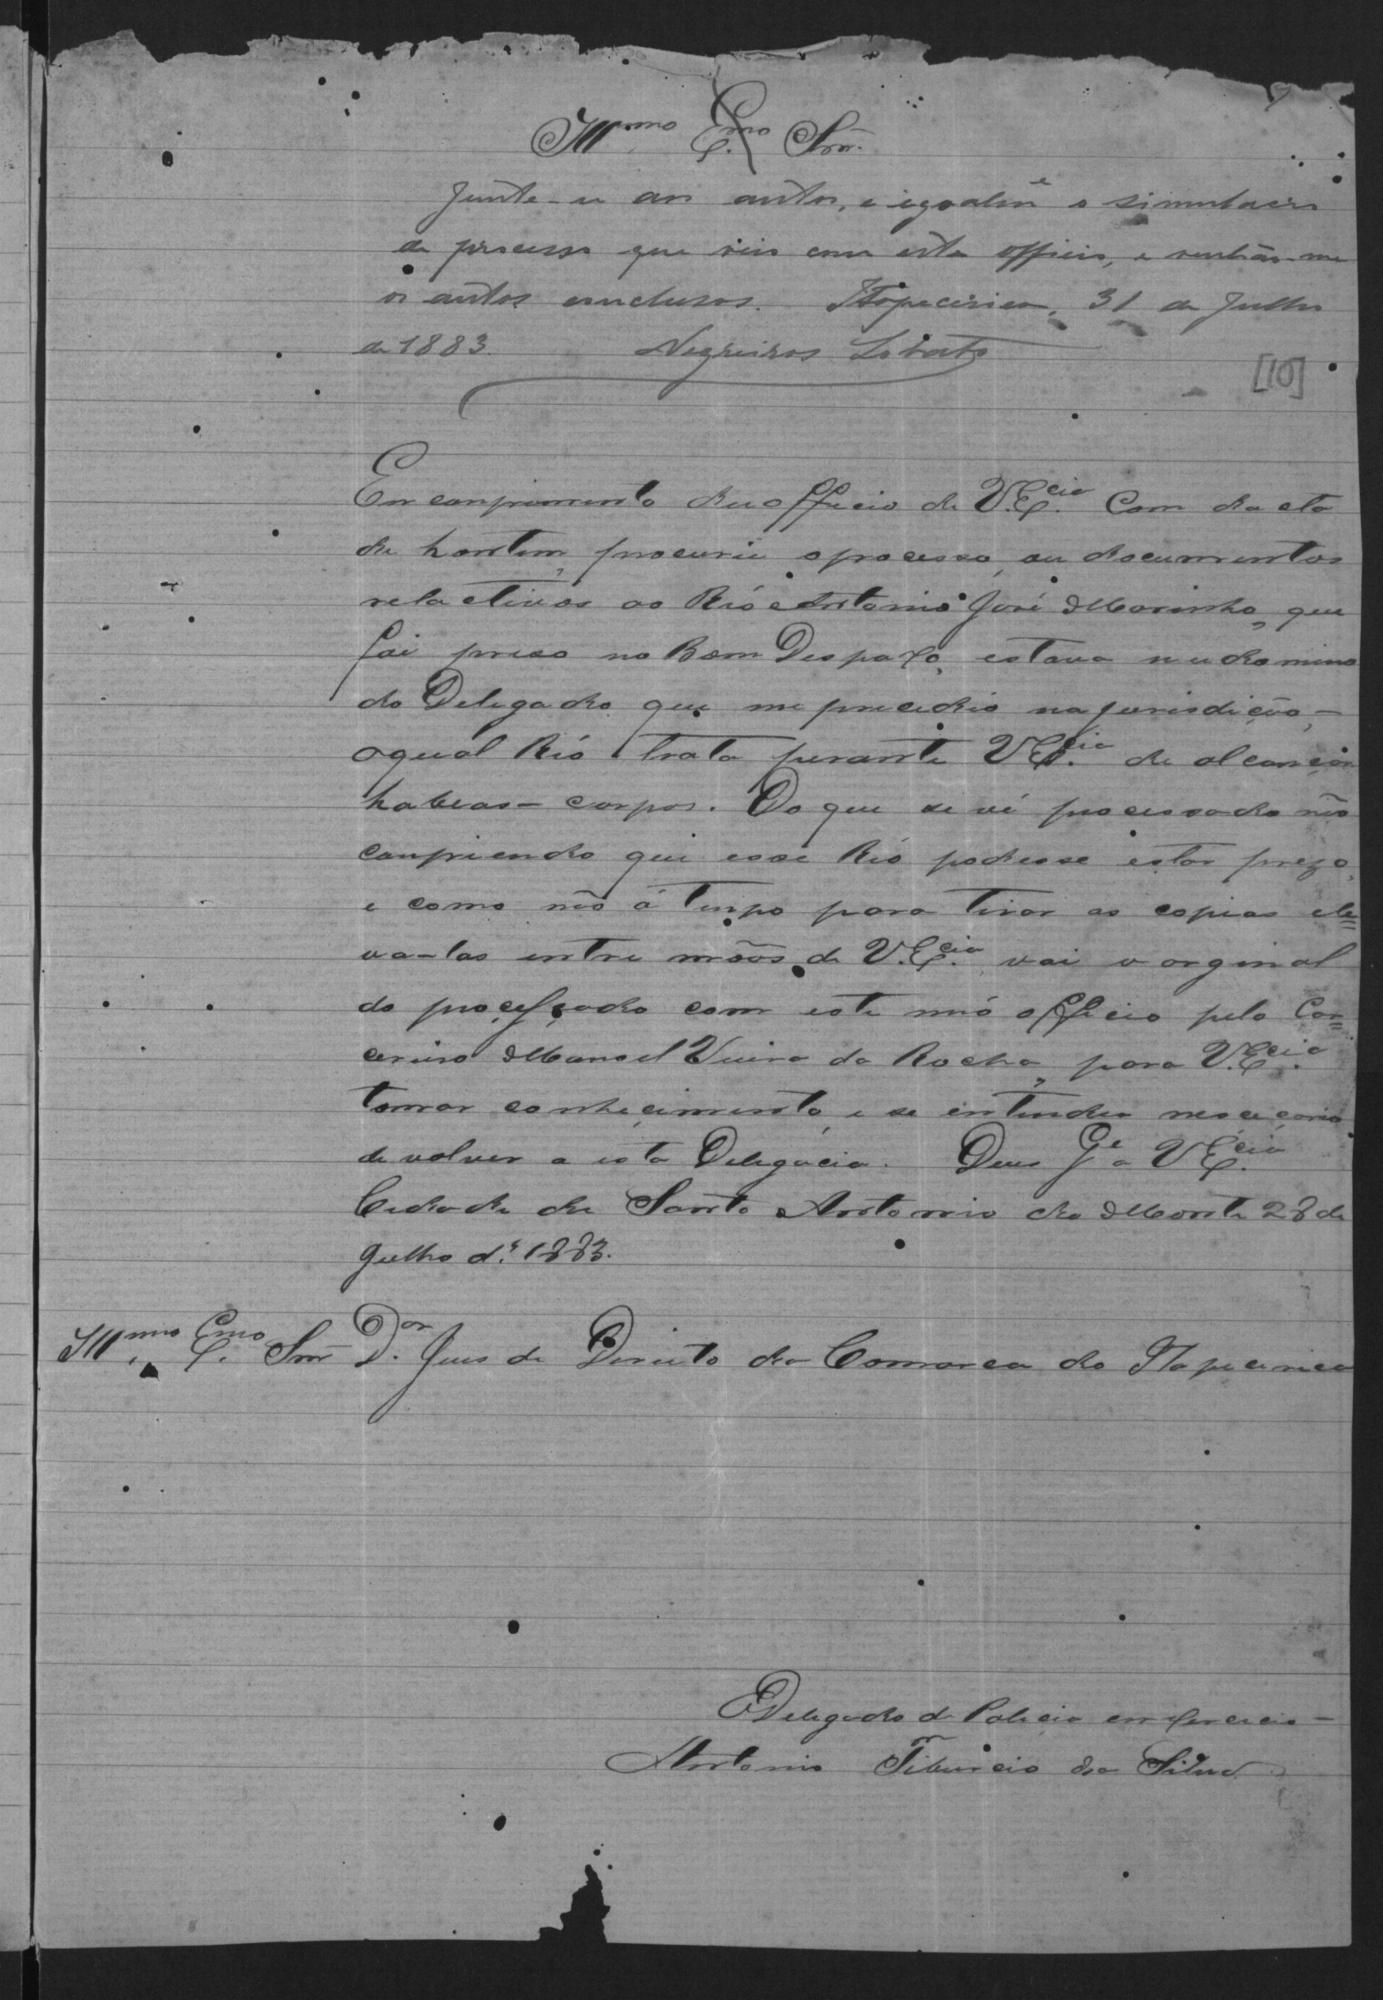 Illmo Exmo Snr.
Junte-se aos autos, e igualme o simulacro
de processo que veio com este officio, e venhão-me
os autos conclusos. Itapecirica, 31 de Julho
de 1883. Negreiros Lobato
[10]
Em comprimento do officio de V. Excia. Com data
de hontem, procurei o processo, ou documentos
relativos ao Réo Antonio José Marinho, que
foi prezo no Bom Despaxo, estava no dominio
do Delegado que me precedeo na jurisdicão,
o qual Réo trata perante V Excia. de alcançar
habeas-corpos. Do que se vê processado não
conpriendo que esse Réo podesse estar prezo,
e como não á tenpo para tirar as copias ele=
va-las entre mãos de V. Excia. vai o orginal
do proceçado com este meo officio pelo Car=
cereiro Manoel Vieira da Rocha, para V. Excia.
tomar conhecimento, e se entender nesceçario
devolver a esta Delegacia. Deus Ge a V Excia.
Cidade de Santo Antonio do Monte 28 de
Julho de 1883.
Illmo Exmo Snr Dor Juis de Direito da Comarca do Itapecerica
O Delegado de Policia em exercicio -
Antonio Tiburcio da Silva